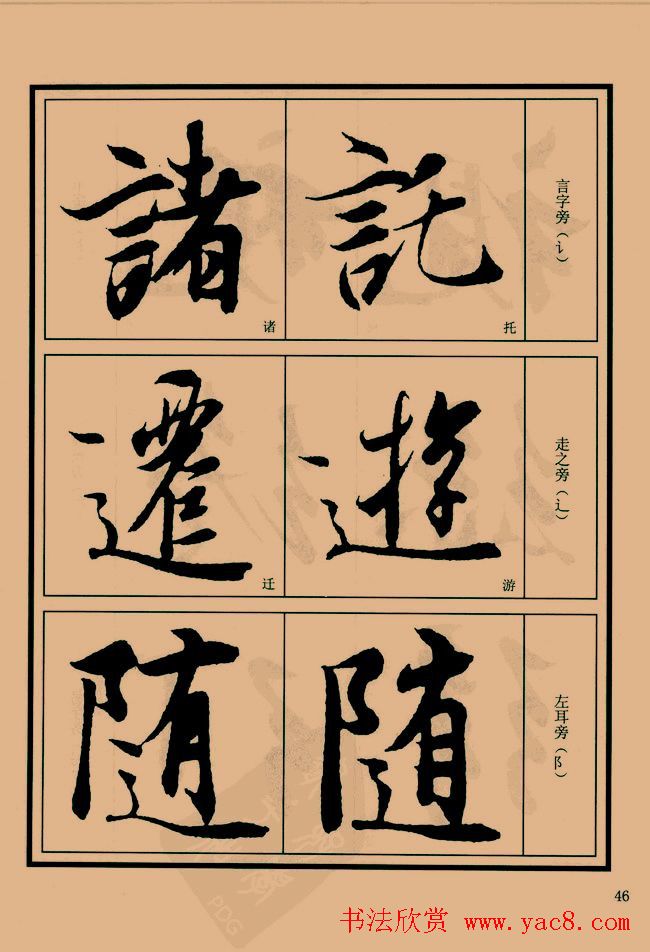 言字旁（讠）
託
托
諸
诸
走之旁（辶）
遊
游
遷
迁
左耳旁（阝）
随
随
46
书法欣赏 www.yac8.com
PDG